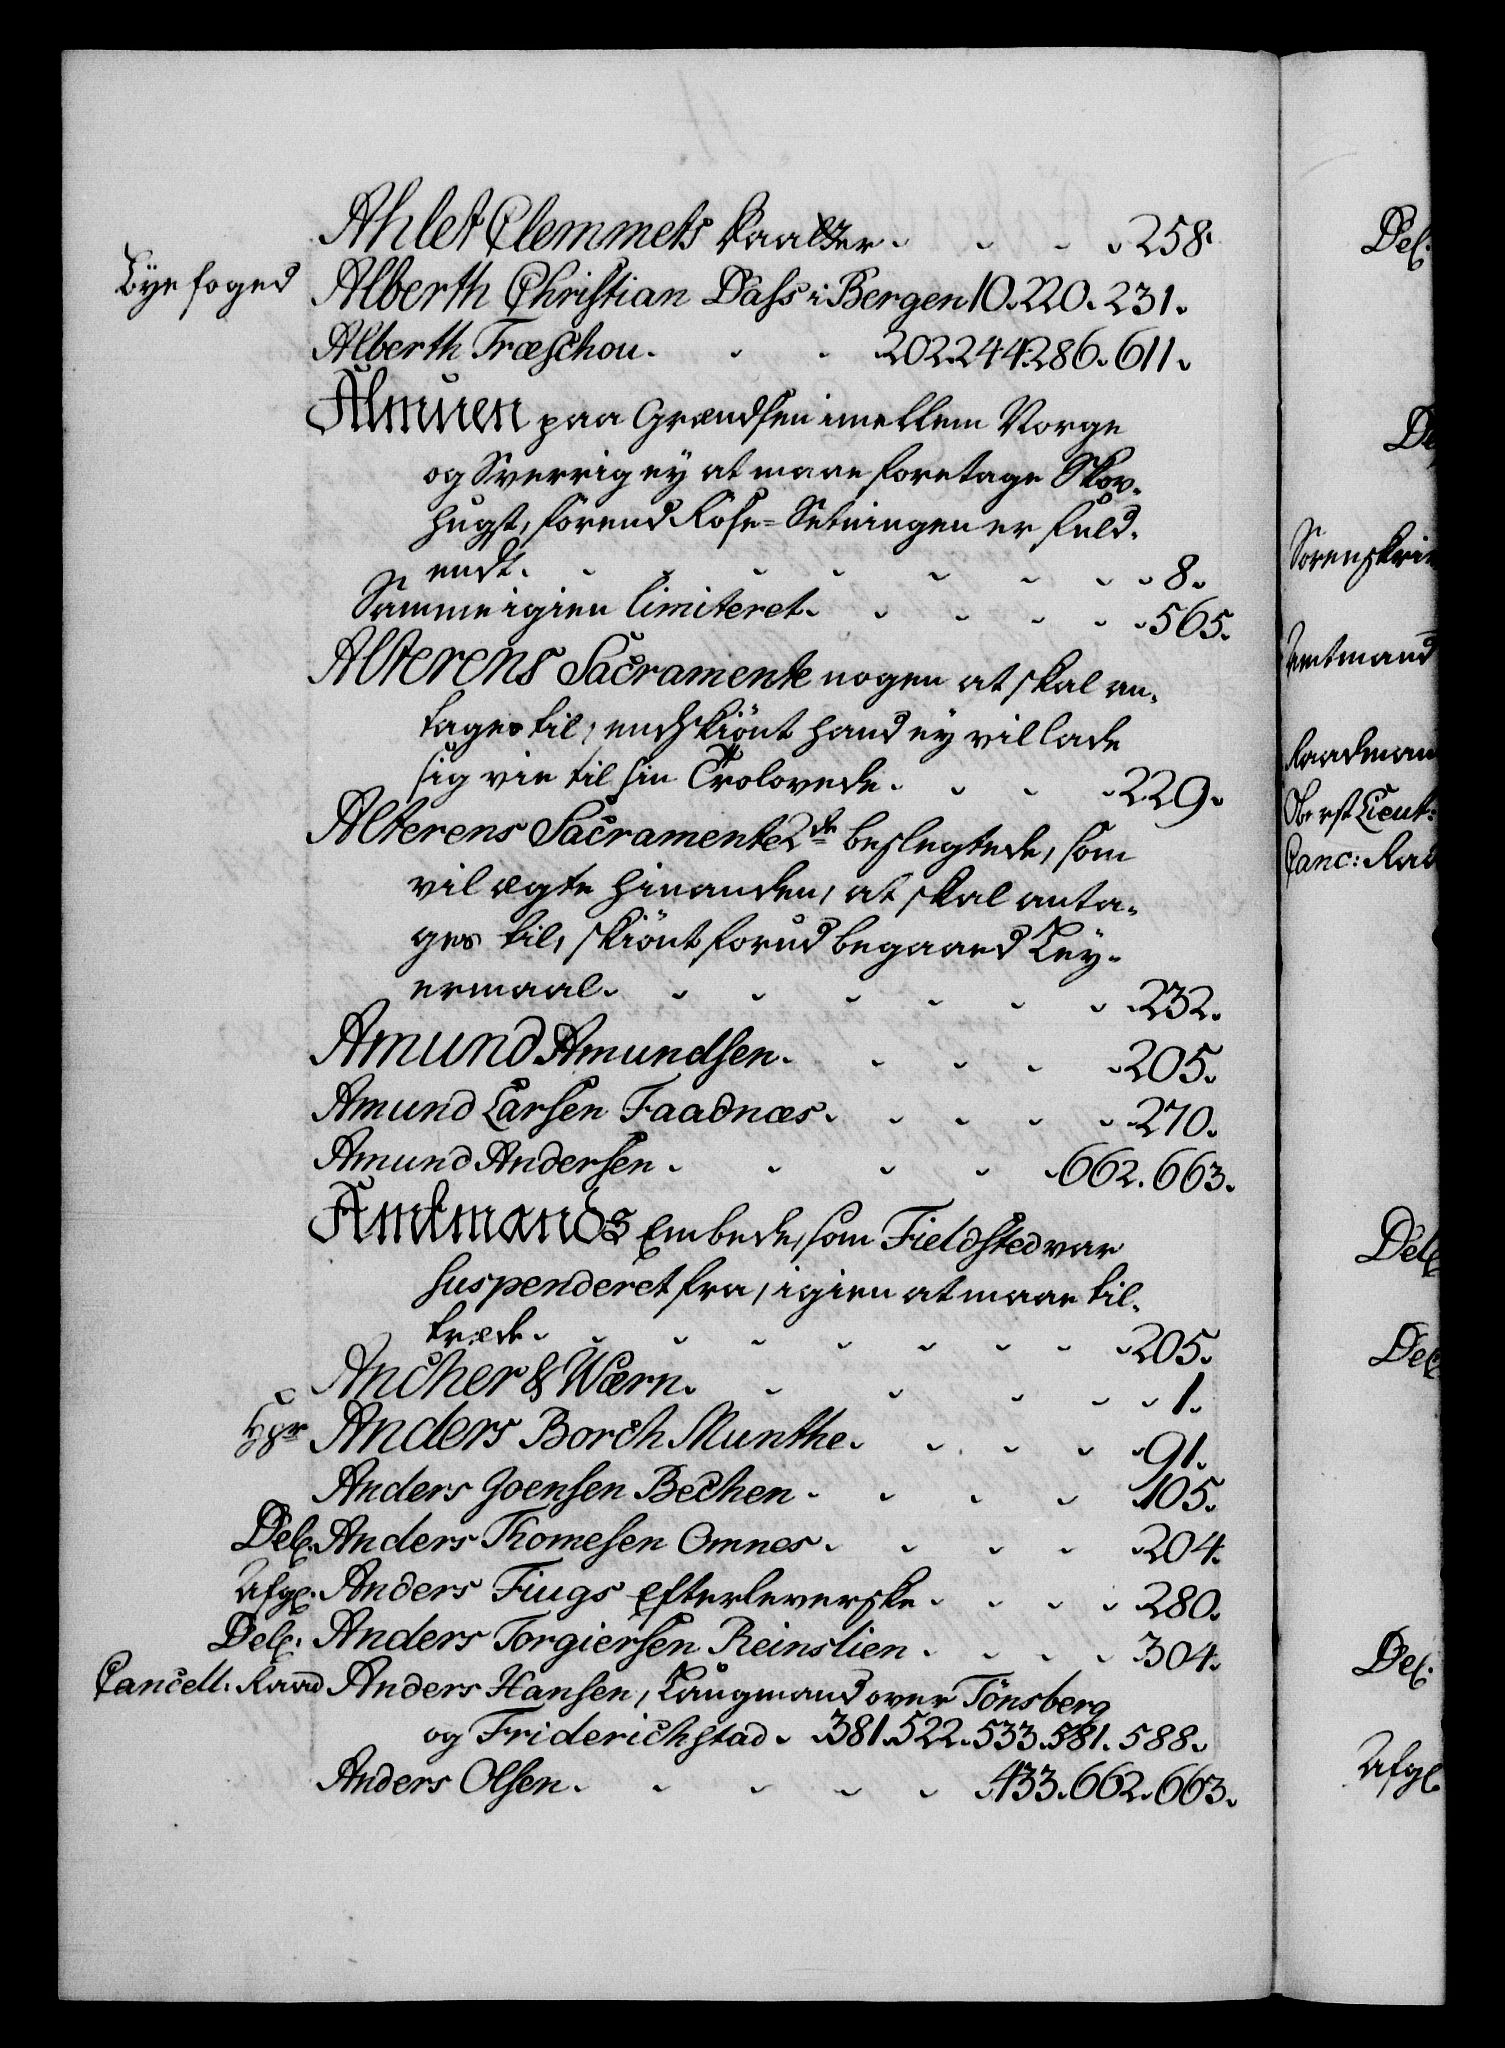 Ahlet Clemmets Kaalter. 258.
Bÿefoged Alberth Christian Dass i Bergen 10. 220. 231.
Alberth Træschou. 202. 244. 286. 611.
Almuen paa Grændsen imellem Norge
og Sverrig eÿ at maae foretage Skov-
hugst, forend Röse-Setningen er fuld-
endt. 8.
Samme igien limiteret. 565.
Alterens Sacramente nogen at skal an-
tages til, endskiönt hand eÿ vil lade
sig vie til sin Trolovede. 229.
Alterens Sacramente 2de beslegtede, som
vil ægte hinanden, at skal anta-
ges til, skiönt forud begaaed Leÿ-
ermaal. 232.
Amund Amundsen. 205.
Amund Larsen Faadnæs. 270.
Amund Andersen. 662. 663.
Amtmands Embede, som Fieldsted var
suspenderet fra, igien at maae til-
træde. 205.
Ancher & Wærn. 1.
Hgr Anders Borch Munthe. 91.
Anders Joensen Bechen. 105.
Del. Anders Thomesen Omnes. 204.
Afgl. Anders Fiugs Efterleverske. 280.
Del. Anders Torgiersen Reinslien. 304.
Cancell. Raad Anders Hansen, Laugmand over Tönsberg
og Friderichstad. 381. 522. 533. 581. 588.
Anders Olsen. 433. 662. 663.
Del.
De
Sorenskri
Amtmand
Raadman
Oberst Lieut:
Canc: Raa
Del
Del
Del.
Afgl.